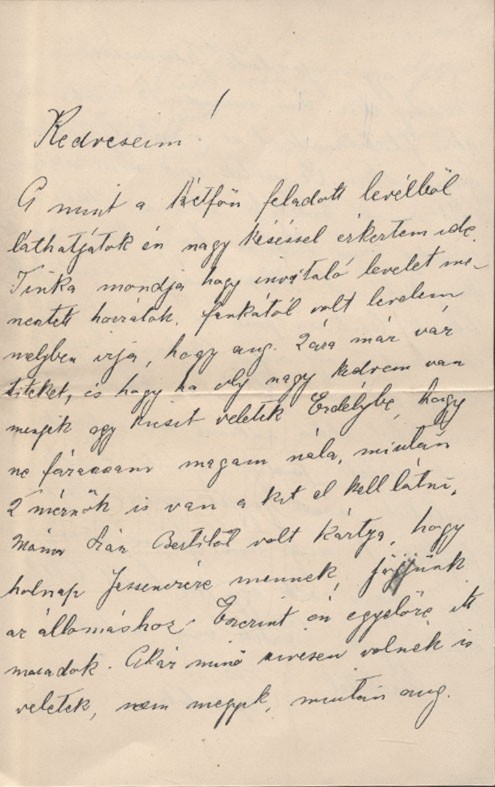 Kedveseim!
A mint a hétfőn feladott levélből
láthatjátok én nagy késéssel érkeztem ide.
Tinka mondja hogy invitáló levelet me-
nesztett hozzátok. Jankától volt levelem
melyben irja, hogy aug. 2ára már vár
titeket, és hogy ha oly nagy kedvem van
menjek egy kicsit veletek Erdélybe, hogy
ne fárasszam magam nála, miután
2 mérnök is van a kit el kell látni.
Bertitől volt kártya, hogy
holnap mennek, jőjjünk
az állomáshoz. Ezerint én egyelőre itt
maradok. Akár minő szivesen volnék is
veletek, nem megyek, miután aug.